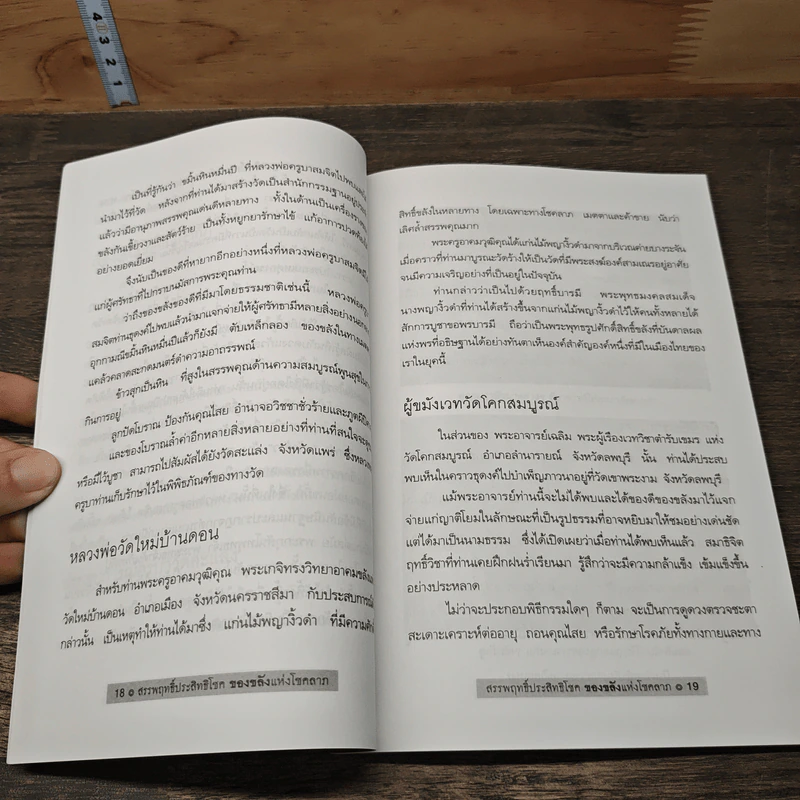 4 3 2 1
เป็นที่รู้กันว่า ขมิ้นหินหมื่นปี ที่หลวงพ่อครูบาสมจิตไปพบและ
นำมาไว้ที่วัด หลังจากที่ท่านได้มาสร้างวัดเป็นสำนักกรรมฐานอยู่
แล้วว่ามีอานุภาพสรรพคุณเด่นดีหลายทาง ทั้งในด้านเป็นเครื่องราง
ขลังกันเขี้ยวงาและสัตว์ร้าย เป็นทั้งหยูกยารักษาไข้ แก้อาการปวด
อย่างยอดเยี่ยม
จึงนับเป็นของดีที่หายากอีกอย่างหนึ่งที่หลวงพ่อครูบาสมจิต
แก่ผู้ศรัทธาที่ไปกราบนมัสการพระคุณท่าน
ว่าถึงของขลังของดีที่มีมาโดยธรรมชาติเช่นนี้ หลวงพ่อครู
สมจิตท่านธุดงค์ไปพบแล้วนำมาแจกจ่ายให้ผู้ศรัทธามีหลายสิ่งอย่าง
อุกกามณีขมิ้นหินหมื่นปีแล้วก็ยังมี ตับเหล็กลอง ของขลังในทาง
แคล้วคลาดสะกดมนตร์ดำความอาถรรพณ์
ข้าวสุกเป็นหิน ที่สูงในสรรพคุณด้านความสมบูรณ์พูนสุขใน
กินการอยู่
ลูกปัดโบราณ ป้องกันคุณไสย อำนาจอวิชชาชั่วร้ายและภูตผี
และของโบราณล้ำค่าอีกหลายสิ่งหลายอย่างที่ท่านที่สนใจจะ
หรือมีไว้บูชา สามารถไปสัมผัสได้ยังวัดสะแล่ง จังหวัดแพร่ ซึ่งหลวง
ครูบาท่านเก็บรักษาไว้ในพิพิธภัณฑ์ของทางวัด
หลวงพ่อวัดใหม่บ้านดอน
สำหรับท่านพระครูอาคมวุฒิคุณ พระเกจิทรงวิทยาอาคมขลัง
วัดใหม่บ้านดอน อำเภอเมือง จังหวัดนครราชสีมา กับประสบการณ์
กล่าวนั้น เป็นเหตุทำให้ท่านได้มาซึ่ง แก่นไม้พญางิ้วดำ ที่มีความ
18 สรรพฤทธิ์ประสิทธิโชค ของขลังแห่งโชคลาภ
สิทธิ์ขลังในหลายทาง โดยเฉพาะทางโชคลาภ เมตตาและค้าขาย นับว่า
เลิศล้ำสรรพคุณมาก
พระครูอาคมวุฒิคุณได้แก่นไม้พญางิ้วดำมาจากบริเวณค่ายบางระจัน
เมื่อคราวที่ท่านมาบูรณะวัดร้างให้เป็นวัดที่มีพระสงฆ์องค์สามเณรอยู่อาศัย
จนมีความเจริญอย่างที่เป็นอยู่ในปัจจุบัน
ท่านกล่าวว่าเป็นไปด้วยฤทธิ์บารมี พระพุทธมงคลสมเด็จ
นางพญางิ้วดำที่ท่านได้สร้างขึ้นจากแก่นไม้พญางิ้วดำไว้ให้คนทั้งหลายได้
สักการบูชาขอพรบารมี ถือว่าเป็นพระพุทธรูปศักดิ์สิทธิ์ขลังที่บันดาลผล
แห่งพรที่อธิษฐานได้อย่างทันตาเห็นองค์สำคัญองค์หนึ่งที่มีในเมืองไทยของ
เราในยุคนี้
ผู้ขมังเวทวัดโคกสมบูรณ์
ในส่วนของ พระอาจารย์เฉลิม พระผู้เรืองเวทวิชาตำรับเขมร แห่ง
วัดโคกสมบูรณ์ อำเภอลำนารายณ์ จังหวัดลพบุรี นั้น ท่านได้ประสบ
พบเห็นในคราวธุดงค์ไปบำเพ็ญภาวนาอยู่ที่วัดเขาพระงาม จังหวัดลพบุรี
แม้พระอาจารย์ท่านนี้จะไม่ได้พบและได้ของดีของขลังมาไว้แจก
จ่ายแก่ญาติโยมในลักษณะที่เป็นรูปธรรมที่อาจหยิบมาให้ชมอย่างเด่นชัด
แต่ได้มาเป็นนามธรรม ซึ่งได้เปิดเผยว่าเมื่อท่านได้พบเห็นแล้ว สมาธิจิต
ฤทธิ์วิชาที่ท่านเคยฝึกฝนร่ำเรียนมา รู้สึกว่าจะมีความกล้าแข็ง เข้มแข็งขึ้น
อย่างประหลาด
ไม่ว่าจะประกอบพิธีกรรมใดๆ ก็ตาม จะเป็นการดูดวงตรวจชะตา
สะเดาะเคราะห์ต่ออายุ ถอนคุณไสย หรือรักษาโรคภัยทั้งทางกายและทาง
สรรพฤทธิ์ประสิทธิโชค ของขลังแห่งโชคลาภ 19